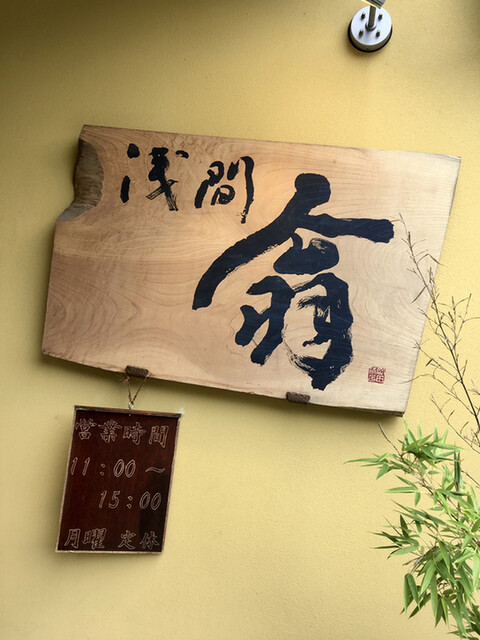 浅間
翁
営業時間
11:00～
15:00
月曜 定休